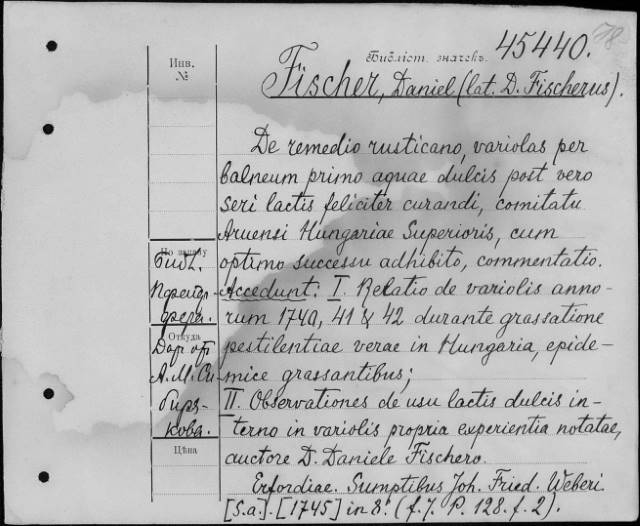 78
Библіот. значекъ. 45440.
Инв.
№
Fischer, Daniel (lat. D. Fischerus).
De remedio rusticano, variolas per
balneum primo aquae dulcis post vero
seri lactis feliciter curandi, comitatu
Aruensi Hungariae Superioris, cum
optimo successu adhibito, commentatio.
Accedunt: I. Relatio de variolis anno-
rum 1740, 41 & 42 durante grassatione
pestilentiae verae in Hungaria, epide-
mice grassantibus;
II. Observationes de usu lactis dulcis in-
terno in variolis propria experientia notatae,
auctore D. Daniele Fischero.
Erfordiae. Sumptibus Joh. Fried. Weberi
[S.a.]. [1745] in 8º. (f. 7. P. 128. f. 2).
По
Библ.
Откуда
Дар от
А. М. Си-
биря-
кова.
Цѣна